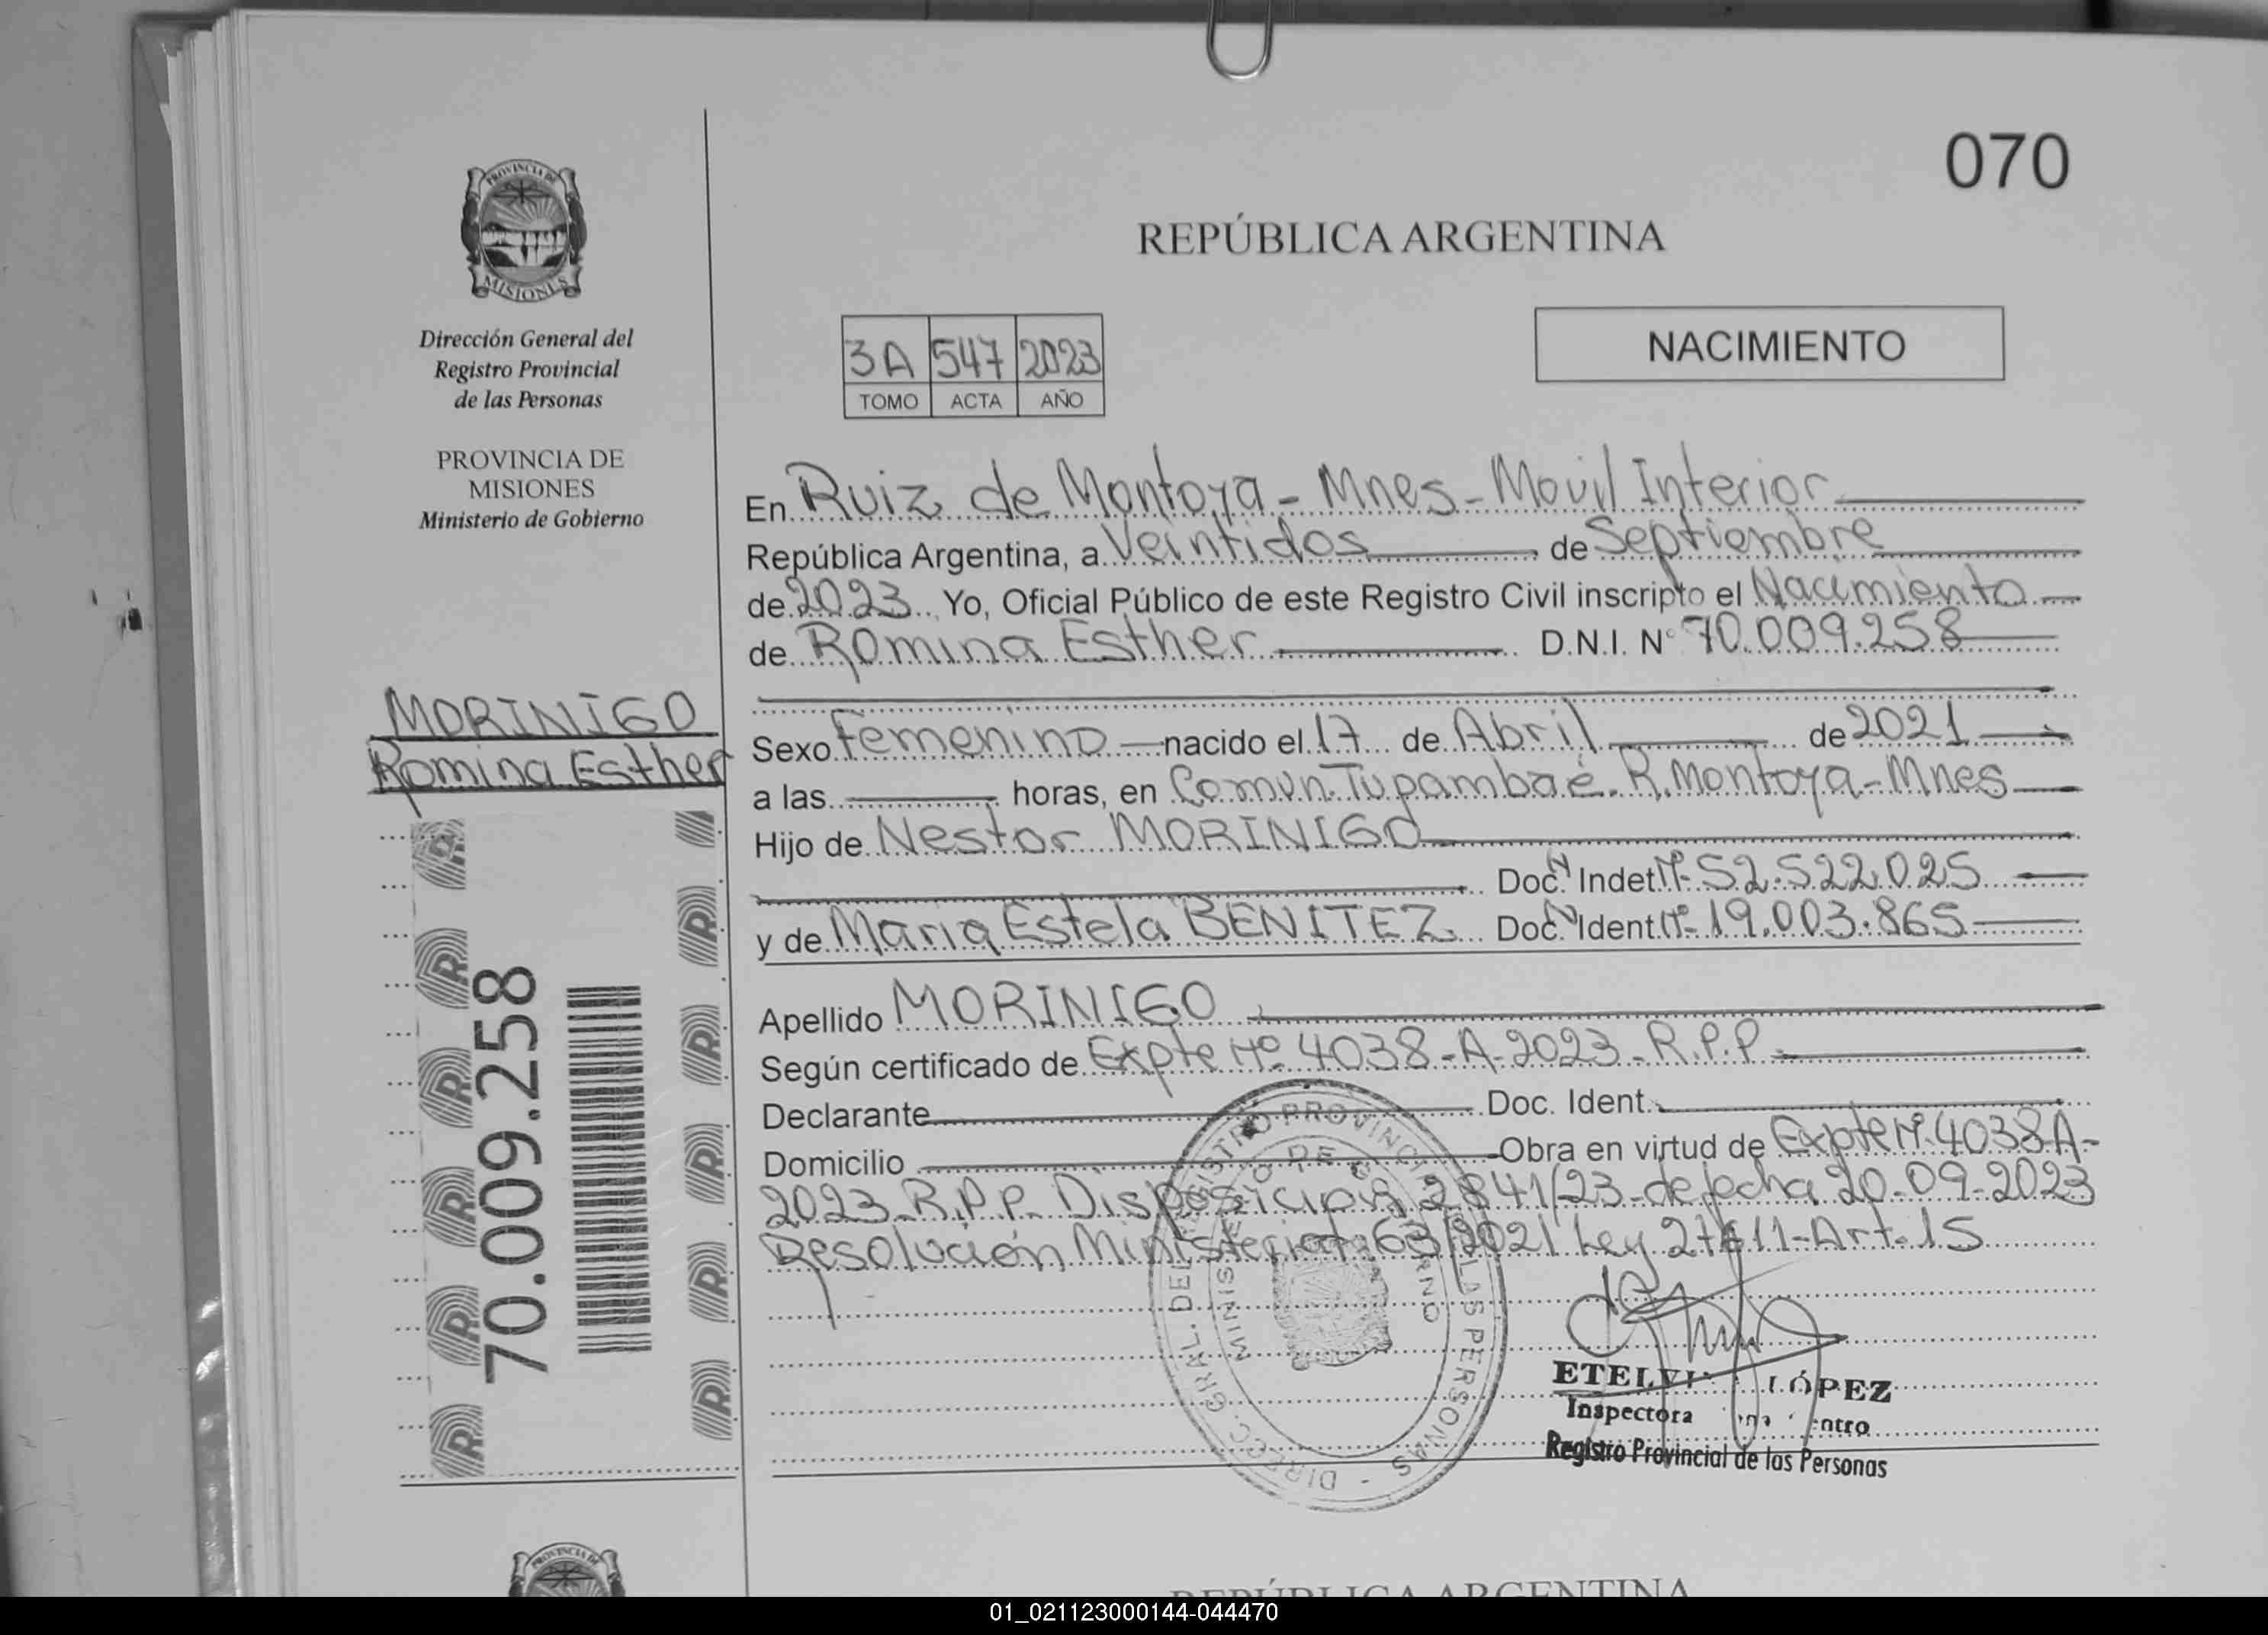 070
PROVINCIA DE
MISIONES
Dirección General del
Registro Provincial
de las Personas
PROVINCIA DE
MISIONES
Ministerio de Gobierno
MORINIGO
Romina Esther
70.009.258
REPÚBLICA ARGENTINA
3A 547 2023
TOMO ACTA AÑO
NACIMIENTO
En Ruiz de Montoya - Mnes - Movil Interior
República Argentina, a Veintidos de Septiembre
de 2023 Yo, Oficial Público de este Registro Civil inscripto el Nacimiento
de Romina Esther D.N.I. N° 70.009.258
Sexo Femenino nacido el 17 de Abril de 2021
a las horas, en Comun. Tupambaé. R. Montoya - Mnes
Hijo de Nestor MORINIGO
Doc. Indet. N° 52.522.025
y de Maria Estela BENITEZ Doc. Ident. N° 19.003.865
Apellido MORINIGO
Según certificado de Expte N° 4038-A-2023-R.P.P
Declarante Doc. Ident.
Domicilio Obra en virtud de Expte N° 4038A-
2023-R.P.P. Disposición 2841/23-de fecha 20-09-2023
Resolución Ministerial 63/2021 Ley 27611-Art-15
DIRECC. GRAL. DEL REGISTRO PROVINCIAL DE LAS PERSONAS -
MINISTERIO DE GOBIERNO
LÓPEZ
Inspectora
Registro Provincial de las Personas
PROVINCIA DE
REPÚBLICA ARGENTINA
01_021123000144-044470